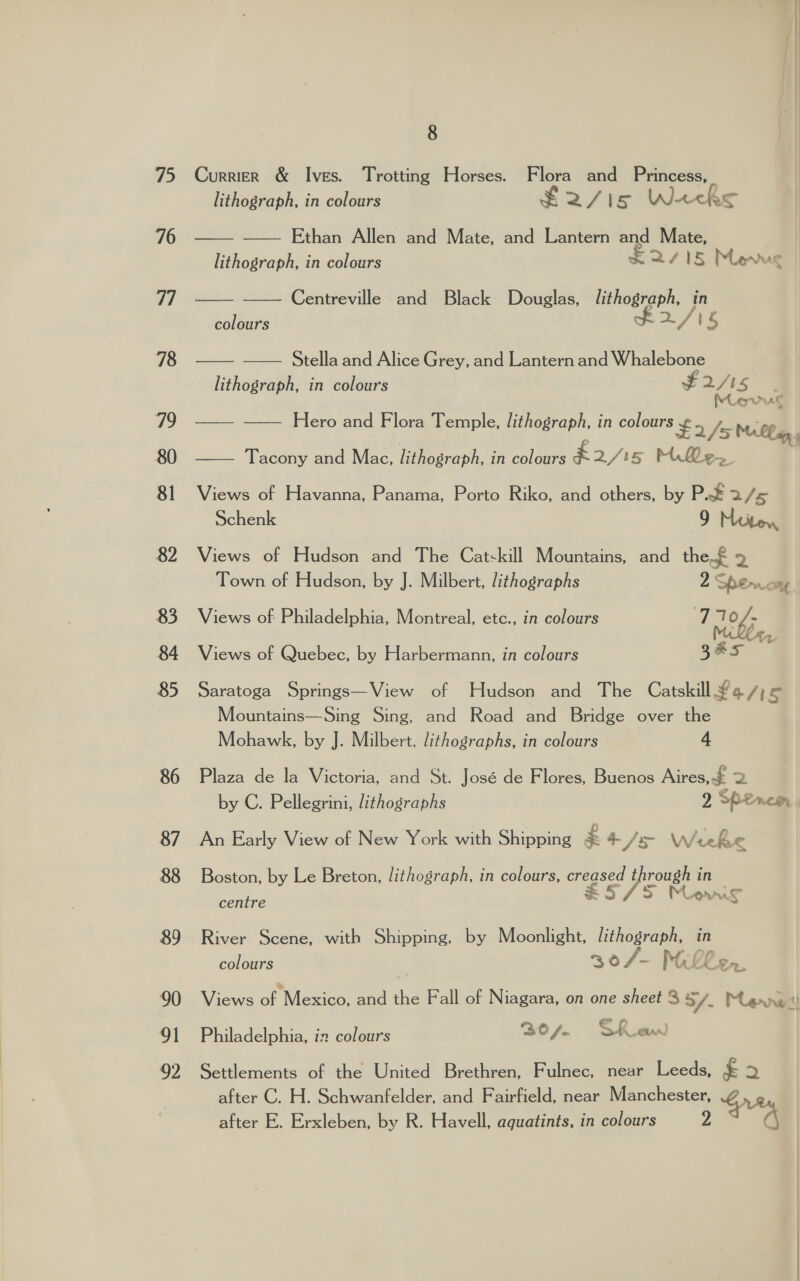 8
75 Currier & Ives. Trotting Horses. Flora and Princess,
lithograph, in colours £2/15 Weeks
76 —— —— Ethan Allen and Mate, and Lantern and Mate,
lithograph, in colours £2/15 Morris
77 —— —— Centreville and Black Douglas, lithograph, in
colours £2/15
78 —— —— Stella and Alice Grey, and Lantern and Whalebone
lithograph, in colours £2/15
Morris
79 —— —— Hero and Flora Temple, lithograph, in colours £2/5 Miller
80 —— Tacony and Mac, lithograph, in colours £2/15 Miller
81 Views of Havanna, Panama, Porto Riko, and others, by P. £2/5
Schenk 9
82 Views of Hudson and The Catskill Mountains, and the £2
Town of Hudson, by J. Milbert, lithographs 2 Spencer
83 Views of Philadelphia, Montreal, etc., in colours 7 70/-
Miller
84 Views of Quebec, by Harbermann, in colours 3 £5
85 Saratoga Springs—View of Hudson and The Catskill £4/15
Mountains—Sing Sing, and Road and Bridge over the
Mohawk, by J. Milbert, lithographs, in colours 4
86 Plaza de la Victoria, and St. José de Flores, Buenos Aires, £2
by C. Pellegrini, lithographs 2 Spencer
87 An Early View of New York with Shipping £4/5 Weeks
88 Boston, by Le Breton, lithograph, in colours, creased through in
centre £5/5 Morris
89 River Scene, with Shipping, by Moonlight, lithograph, in
colours 30/- Miller
90 Views of Mexico, and the Fall of Niagara, on one sheet 35/- Morris
91 Philadelphia, in colours 30/- Shaw
92 Settlements of the United Brethren, Fulnec, near Leeds, £2
after C. H. Schwanfelder, and Fairfield, near Manchester,
after E. Erxleben, by R. Havell, aquatints, in colours 2